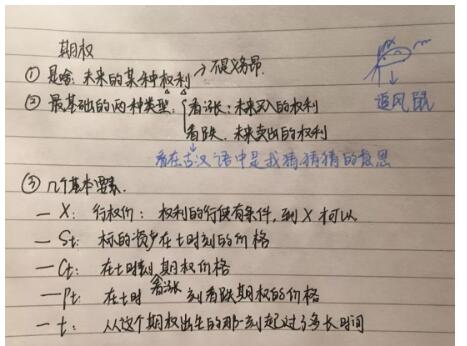 期权
① 是啥: 未来的某种权利 → 不是义务昂.
② 最基础的两种类型: 看涨: 未来买入的权利
看跌: 未来卖出的权利
看在古汉语中是我猜猜猜的意思
追风鼠
③ 几个基本要素.
— X: 行权价: 权利的行使有条件, 到X才可以
— St: 标的资产在t时刻的价格
— Ct: 在t时刻看涨期权价格
— Pt: 在t时刻看跌期权的价格
— t: 从这个期权出生的那一刻起过了多长时间